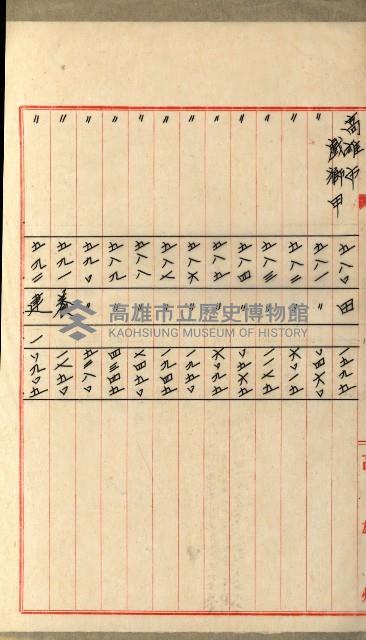 高雄市戲獅甲 五八〇 田 一五九五
〃 五八一 〃 〇四六〇
〃 五八二 〃 六〇一五
〃 五八三 〃 一二七五
〃 五八四 〃
〃 五八五 〃
〃 五八六 〃
〃 五八七 〃
〃 五八八 〃
〃 五八九 〃 四三四五
〃 五九〇 〃 五三八〇
〃 五九一 養
〃 五九二 建 一 〇九〇五
高雄市立歷史博物館
KAOHSIUNG MUSEUM OF HISTORY